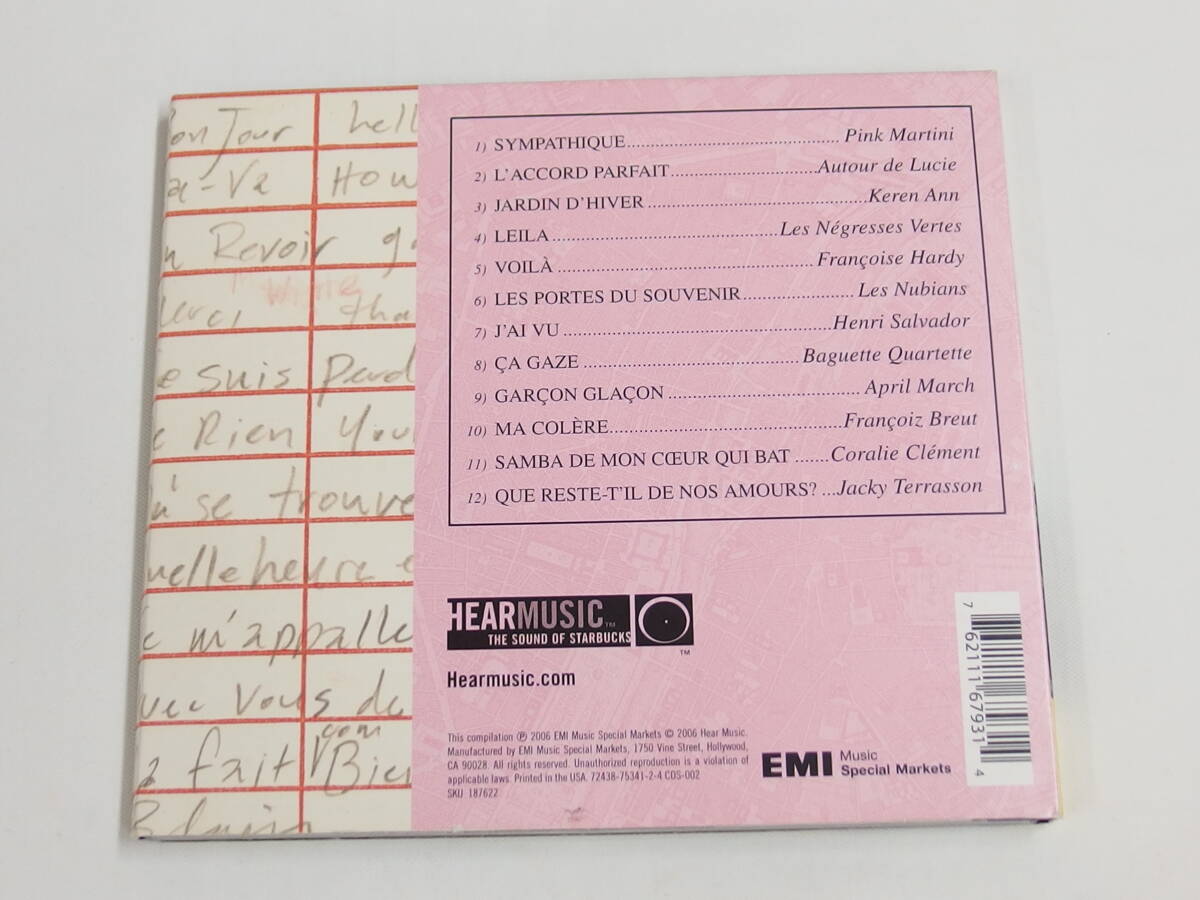 on Jour hell
a-Va How
Revoir
While
erci tha
e suis perd
Rien You
se trouve
uelle heure e
m'appalle
vec vous de
com
fait Bien
1) SYMPATHIQUE........................................ Pink Martini
2) L'ACCORD PARFAIT............................Autour de Lucie
3) JARDIN D'HIVER..........................................Keren Ann
4) LEILA...........................................Les Négresses Vertes
5) VOILÀ.................................................Françoise Hardy
6) LES PORTES DU SOUVENIR.....................Les Nubians
7) J'AI VU...................................................Henri Salvador
8) ÇA GAZE.........................................Baguette Quartette
9) GARÇON GLAÇON.....................................April March
10) MA COLÈRE.............................................Françoiz Breut
11) SAMBA DE MON CŒUR QUI BAT.......Coralie Clément
12) QUE RESTE-T'IL DE NOS AMOURS? ...Jacky Terrasson
HEARMUSIC™
THE SOUND OF STARBUCKS
™
Hearmusic.com
This compilation ℗ 2006 EMI Music Special Markets © 2006 Hear Music.
Manufactured by EMI Music Special Markets, 1750 Vine Street, Hollywood,
CA 90028. All rights reserved. Unauthorized reproduction is a violation of
applicable laws. Printed in the USA. 72438-75341-2-4 CDS-002
SKU 187622
EMI Music
Special Markets
7 62111 67931 4